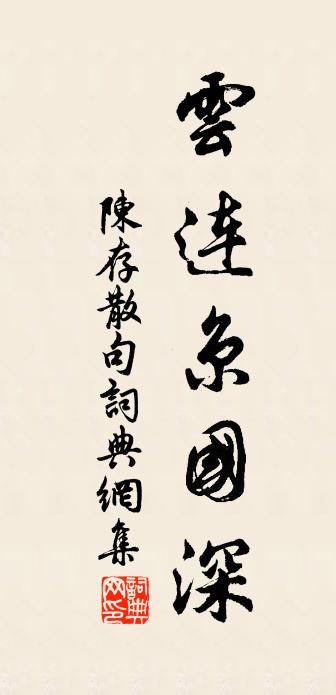 雲連京國深
陳存散句詞典網集
詞典网印